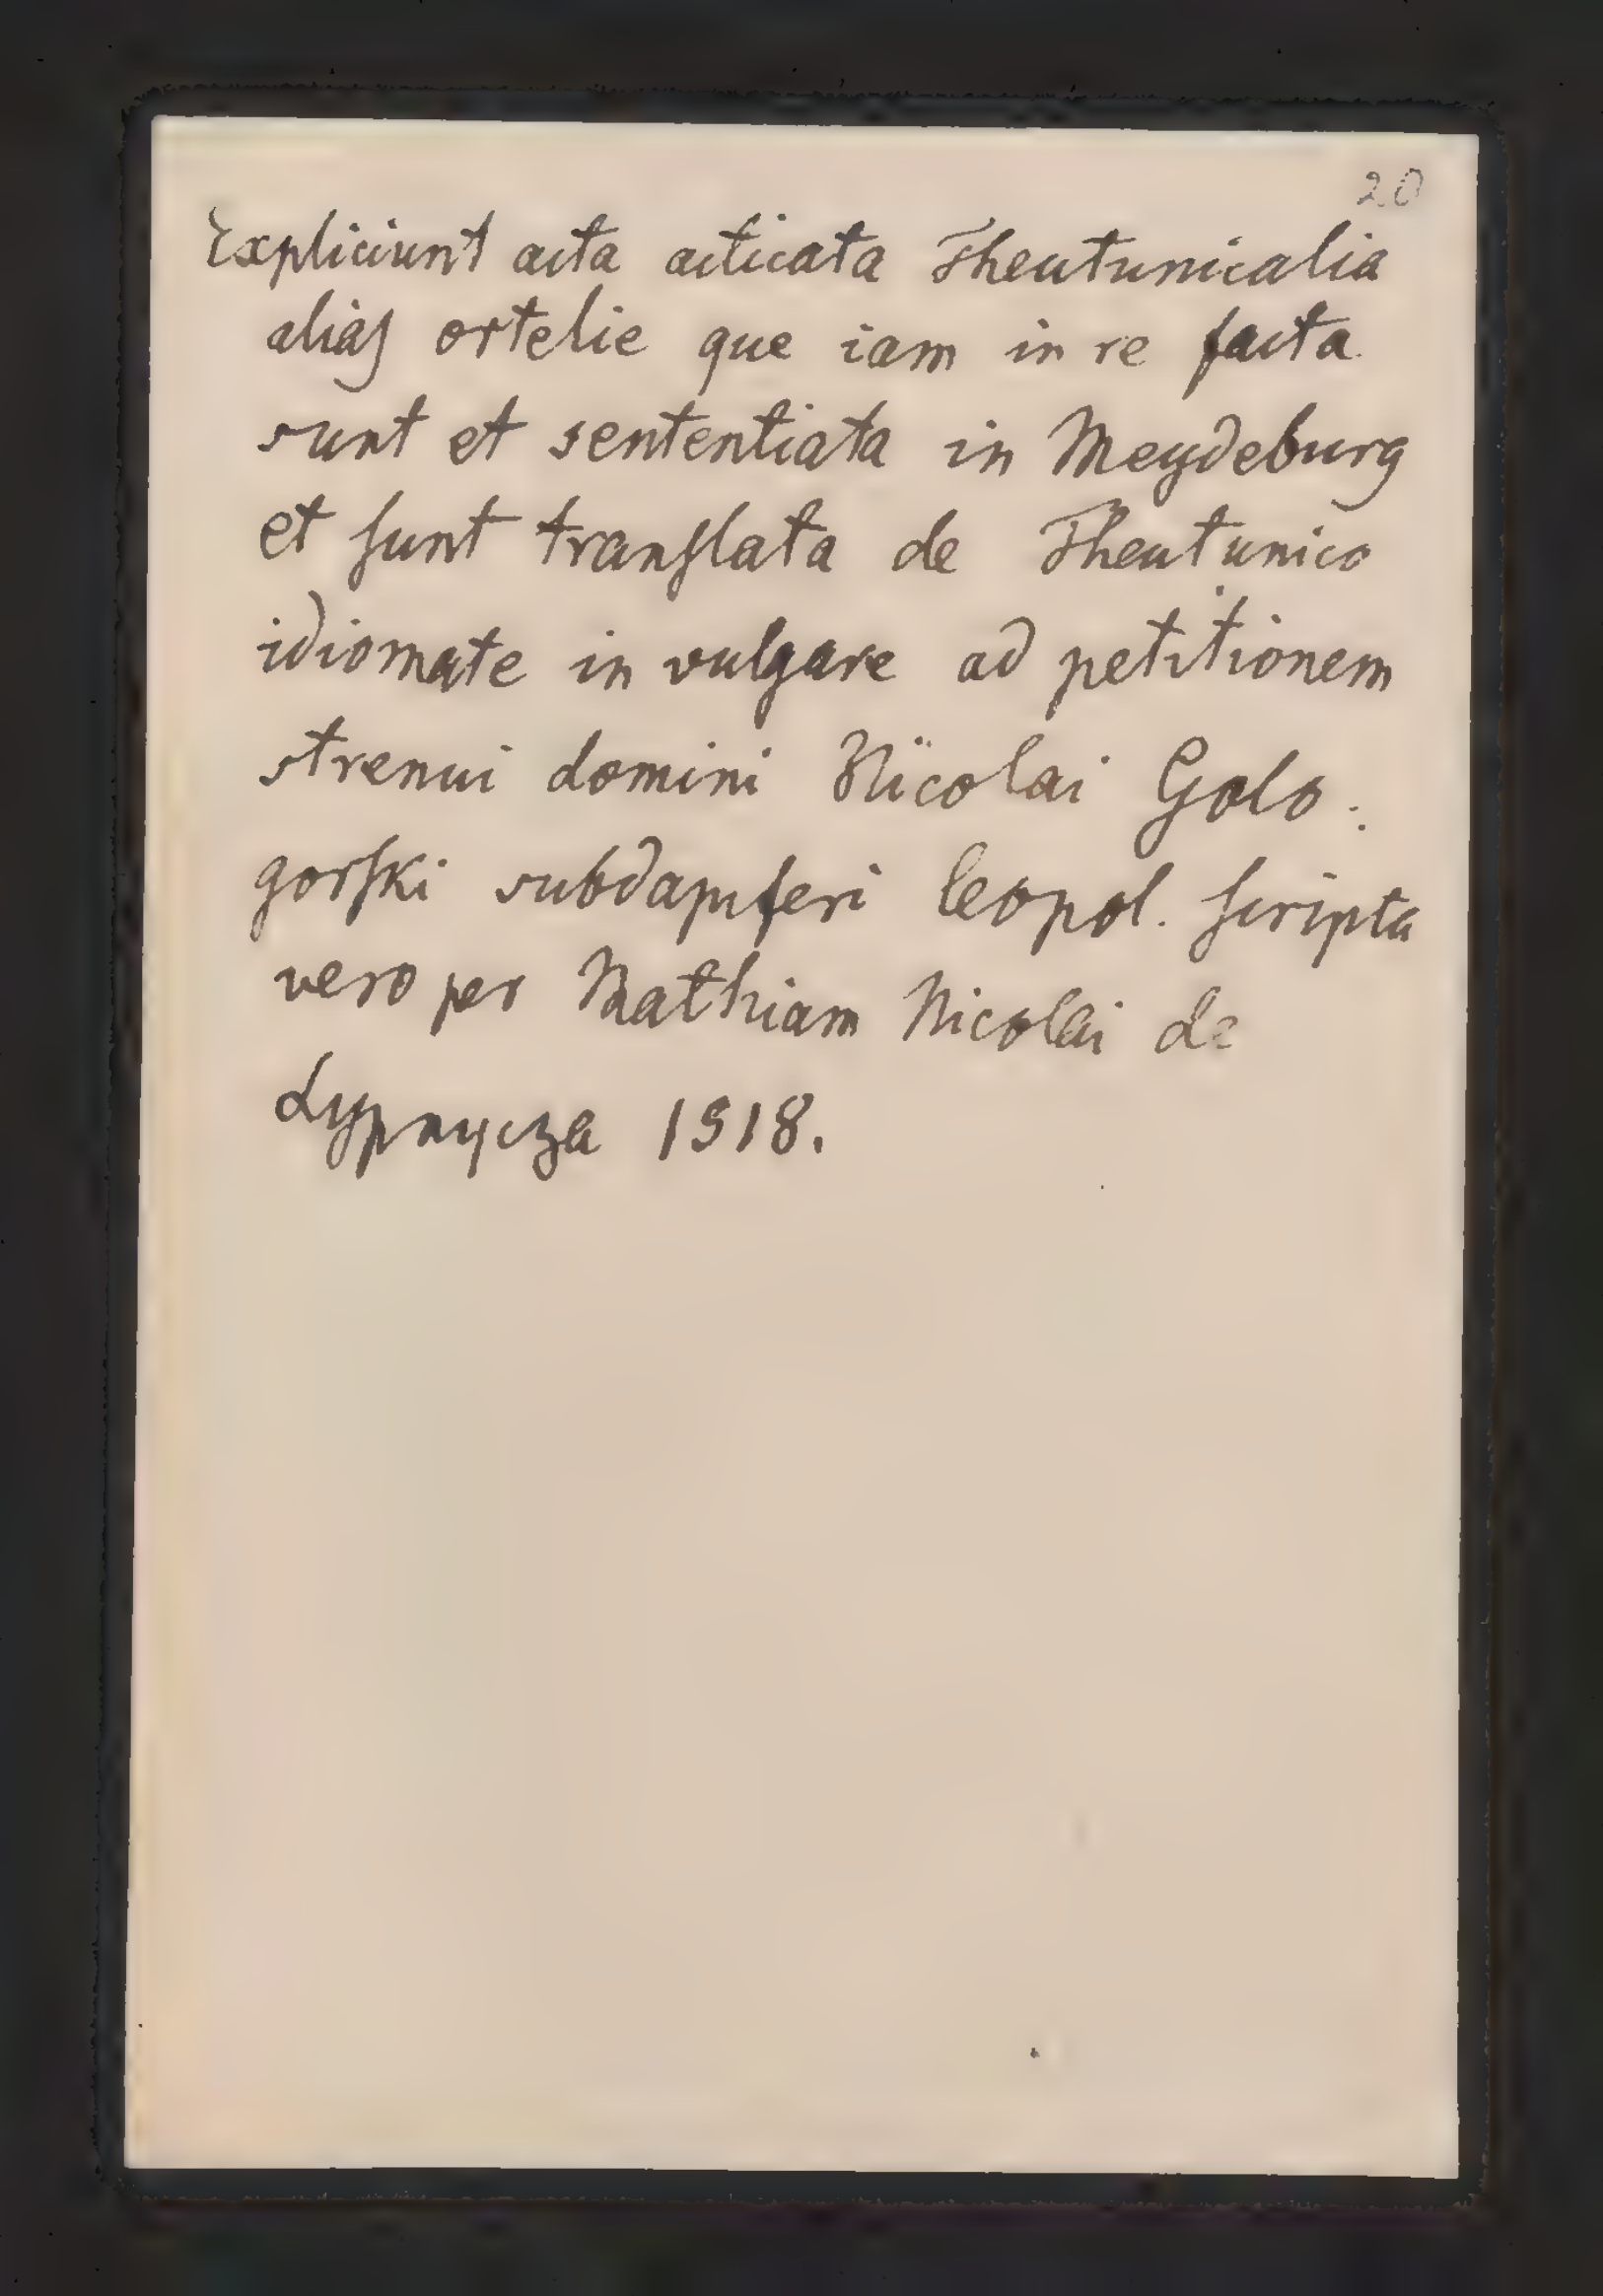 20
Expliciunt acta acticata Theutunicalia
aliaſ ortelie que iam in re facta
sunt et sententiata in Meydeburg
et ſunt tranſlata de Theutunico
idiomate in vulgare ad petitionem
strenui domini Nicolai Golo:
gorſki subdapiferi leopol. ſcripta
vero per Mathiam Nicolai de
Lypnycza 1518.